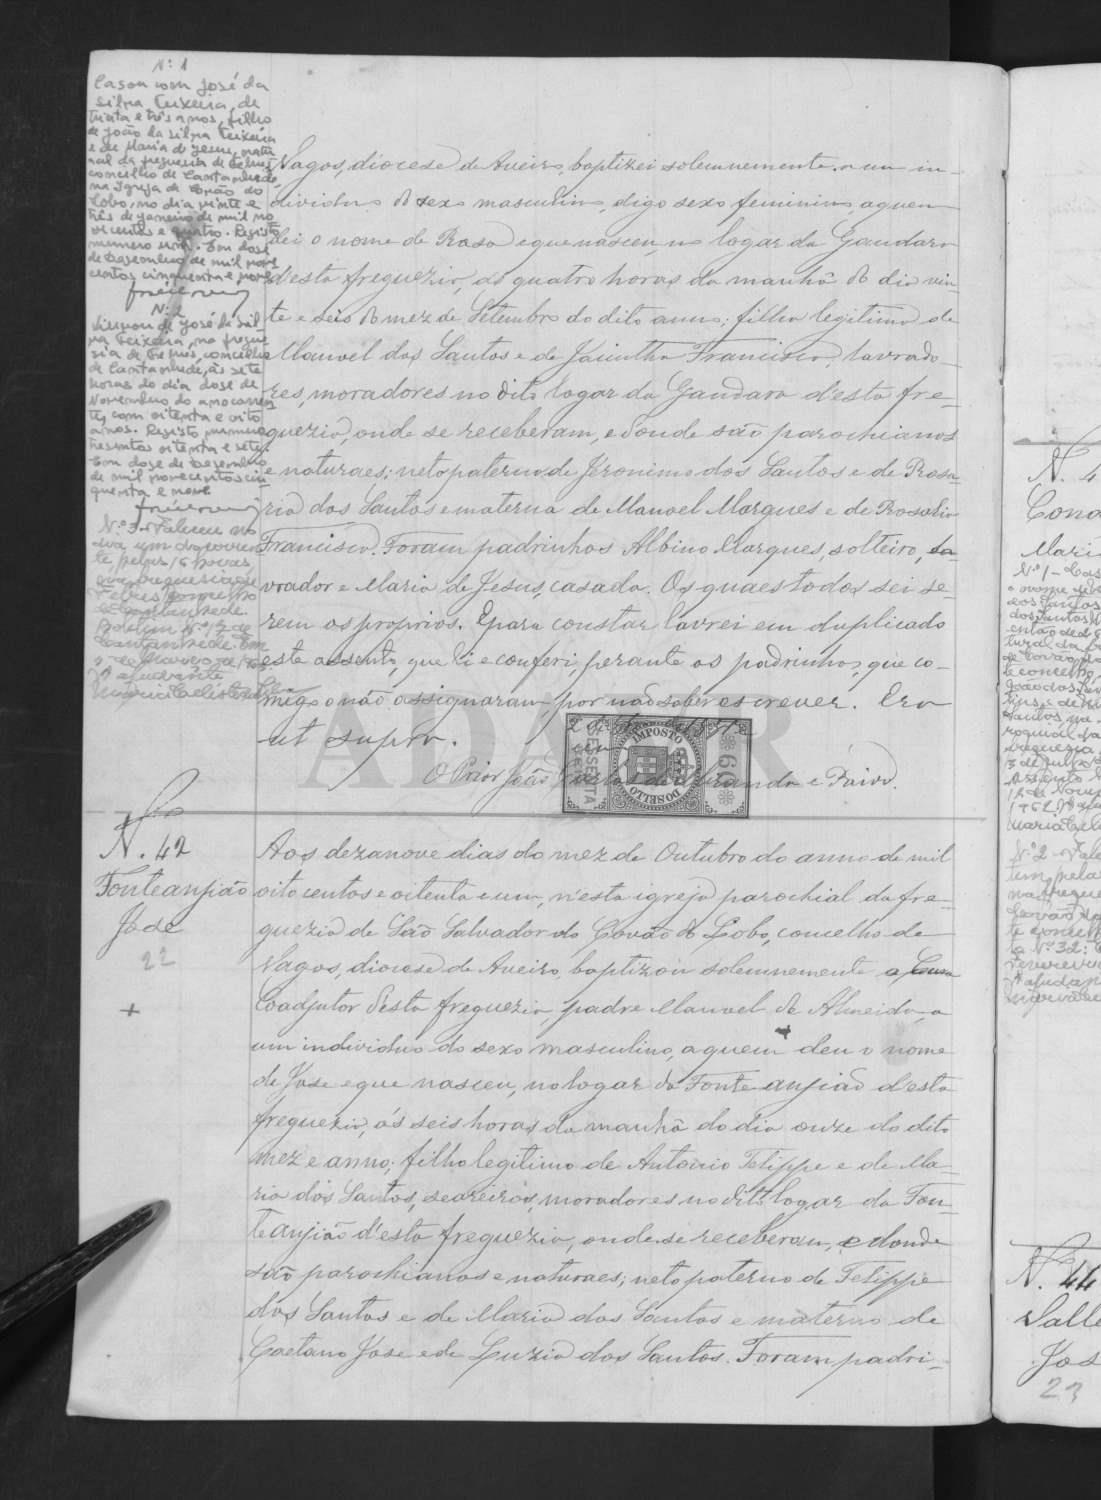 Nº 1
Casou com José da
Silva Teixeira, de
trinta e três anos, filho
de João da Silva Teixeira
e de Maria de Jesus, natu
ral da freguesia de Febres
concelho de Cantanhede,
na Igreja de Covão do
Lobo, no dia vinte e
três de janeiro de mil no
vecentos e quatro. Registo
numero um. Em doze
de Dezembro de mil nove
centos cinquenta e nove
Nº 2
Viuvou de José da Sil
va Teixeira, na fregue
sia de Febres, concelho
de Cantanhede, ás sete
horas do dia doze de
Novembro do ano corren
te, com oitenta e oito
anos. Registo numero
trezentos oitenta e sete.
Em doze de Dezembro
de mil novecentos cin
quenta e nove
Nº 3 - Faleceu no
dia um do corren
te, pelas 16 horas
na freguesia de
Febres, concelho
de Cantanhede.
Boletim Nº
Cantanhede. Em
de Março de
ajudante
Vagos, diocese de Aveiro, baptizei solemnemente a um in-
dividuo do sexo masculino, digo sexo feminino, a quem
dei o nome de Rosa e que nasceu, no logar da Gandara
d'esta freguezia, ás quatro horas da manhã do dia vin-
te e seis do mez de Setembro do dito anno; filha legitima de
Manoel dos Santos e de Jacintha Francisca, lavrado-
res, moradores no dito logar da Gandara d'esta fre-
guezia, onde se receberam, e donde são parochianos
e naturaes; neta paterna de Jeronimo dos Santos e de Rosa-
ria dos Santos e materna de Manoel Marques e de Rosalia
Francisca. Foram padrinhos Albino Marques, solteiro, la-
vrador e Maria de Jesus, casada. Os quaes todos sei se-
rem os proprios. E para constar lavrei em duplicado
este assento, que li e conferi, perante os padrinhos, que co-
migo o não assignaram por não saber escrever. Era
ut supra.
IMPOSTO
DO SELLO
SESSENTA
REIS
60
O Prior João de Miranda e Paiva.
N. 42
Fonteanjião
José
22
+
Aos dezanove dias do mez de Outubro do anno de mil
oito centos e oitenta e um, n'esta igreja parochial da fre-
guezia de São Salvador do Covão do Lobo, concelho de
Vagos, diocese de Aveiro, baptizou solemnemente o
Coadjutor d'esta freguezia, padre Manoel de Almeida, a
um individuo do sexo masculino, a quem deu o nome
de Jose e que nasceu, no logar da Fonte anjião d'esta
freguezia, ás seis horas da manhã do dia onze do dito
mez e anno; filho legitimo de Antonio Felippe e de Ma-
ria dos Santos, seareiros, moradores no dito logar da Fon-
te anjião d'esta freguezia, onde se receberam, e donde
são parochianos e naturaes; neto paterno de Felippe
dos Santos e de Maria dos Santos e materno de
Caetano Jose e de Luzia dos Santos. Foram padri-
N. 4
N. 44
Jos
23
ADAVR